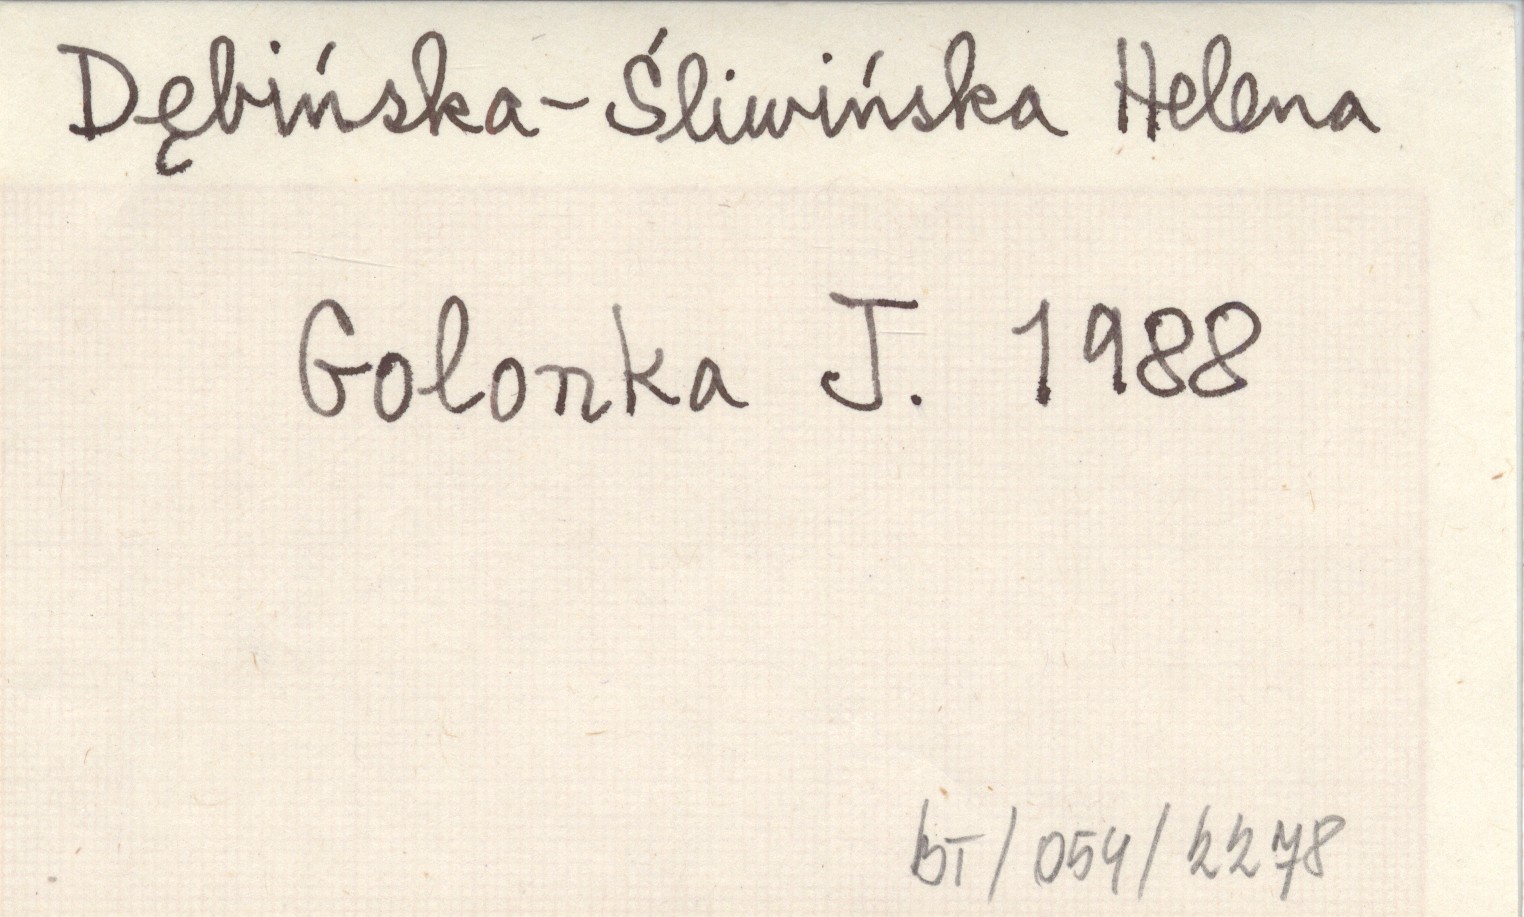 Dębińska-Śliwińska Helena
Golonka J. 1988
BT/054/2278